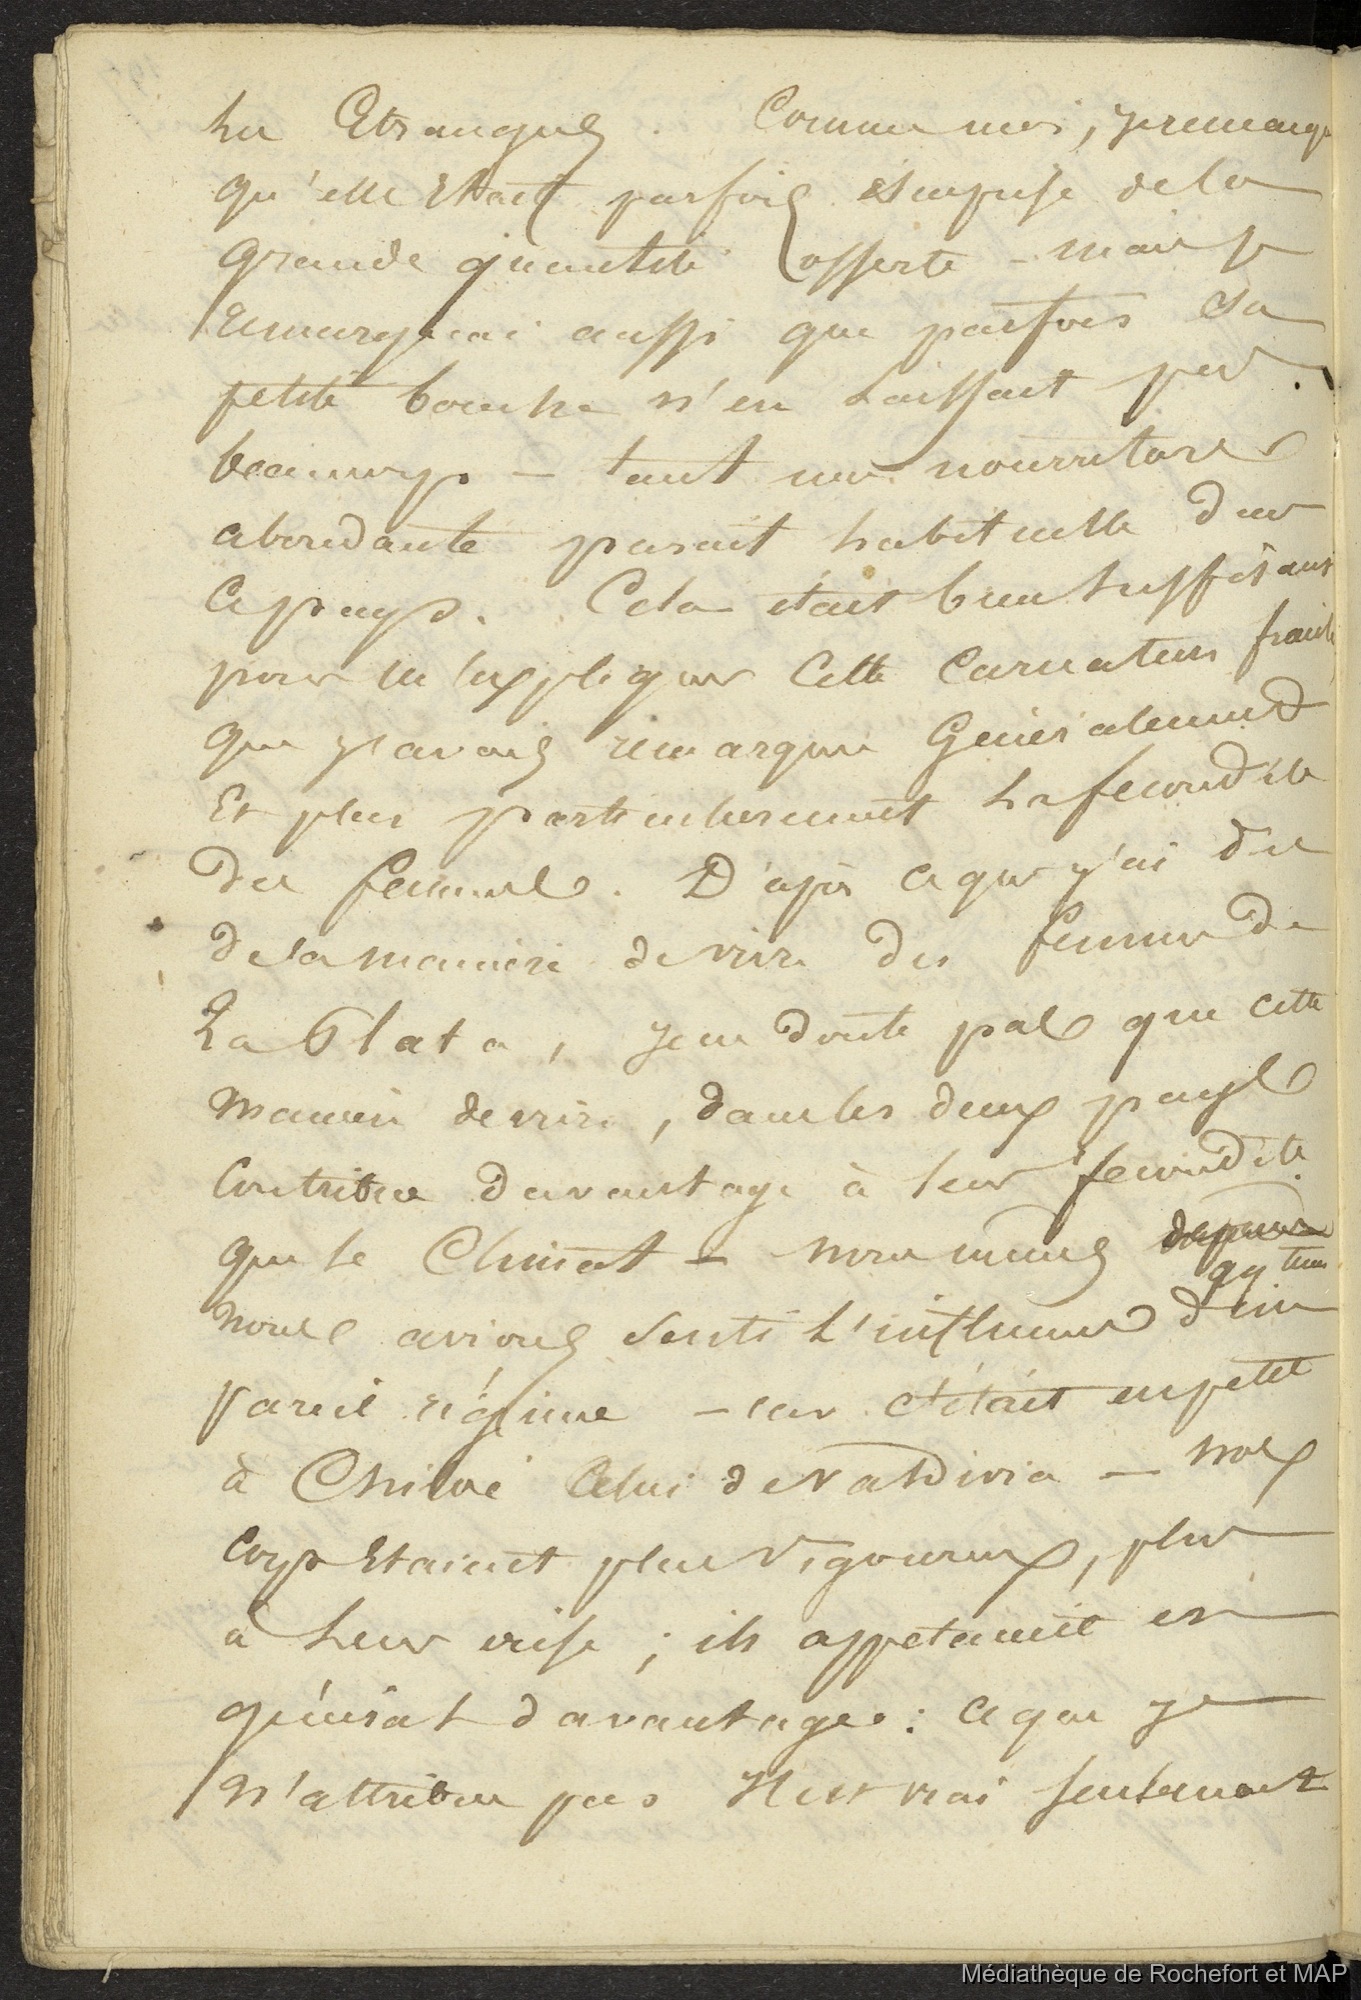 les Etrangers. Comme moi, je remarquai
qu'elle Etait parfois surprise de la
grande quantité offerte – mais je
remarquai aussi que parfois sa
petite bouche n'en laissait pas
beaucoup – tant une nourriture
abondante parait habituelle dans
ce pays. Cela était bien suffisant
pour m'expliquer cette carnation fraiche
que j'avais remarquée Généralement
Et plus particulierement la fecondité
des femmes. D'après ce que j'ai dit
de la manière de vivre des femmes de
La Plata, je ne doute pas que cette
maniere de vivre, dans les deux pays
contribue davantage à leur fecondité
que le Climat – nous mêmes
nous avions senti l'influence d'un
pareil régime – car c'était en petit
à Chiloé celui de Valdivia – nos
corps Etaient plus vigoureux, plus
à leur aise ; ils appetaient en
général davantage : ce que je
n'attribue pas Il est vrai seulement
Médiathèque de Rochefort et MAP